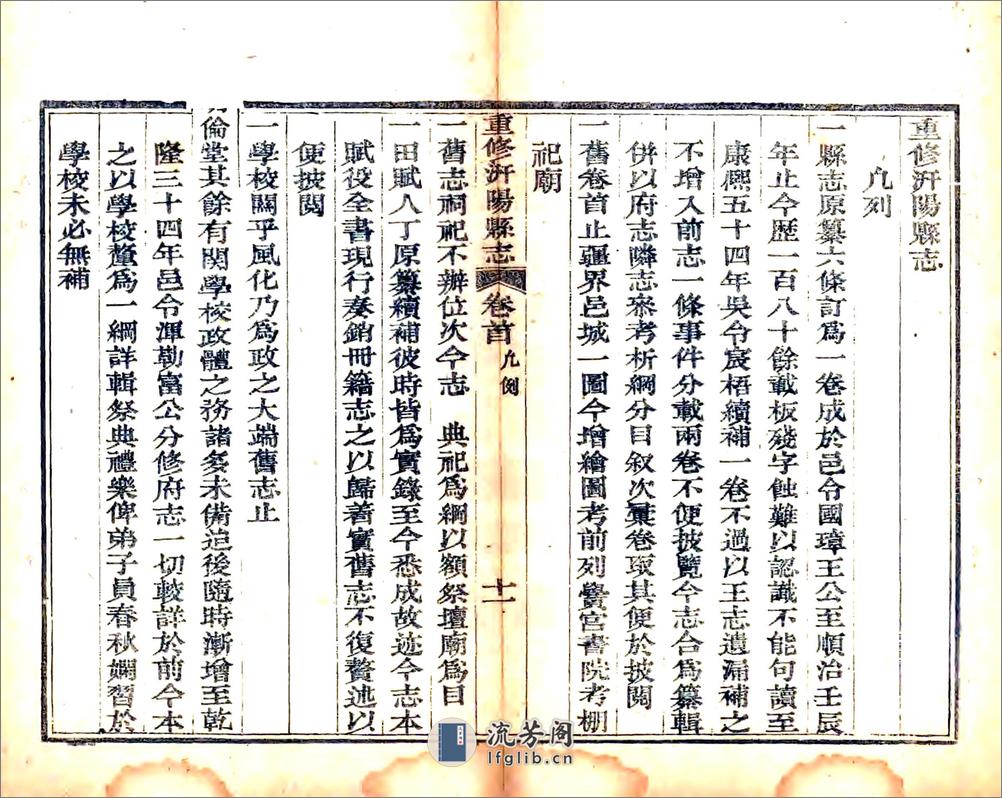 重修汧陽縣志
凡列
一縣志原纂六條訂爲一卷成於邑令國璋王公至順治壬辰
年止今歷一百八十餘載板殘字蝕難以認識不能句讀至
康熙五十四年吳令宸梧續補一卷不過以王志遺漏補之
不增入前志一條事件分載兩卷不便披覽今志合爲纂輯
併以府志隣志叅考析綱分目叙次彙卷取其便於披閱
一舊卷首止疆界邑城一圖今增繪圖考前列黌宮書院考棚
祀廟
重修汧陽縣志 卷首 凡例 十一
一舊志祠祀不辨位次今志 典祀爲綱以額祭壇廟爲目
一田賦人丁原纂續補彼時皆爲實錄至今悉成故迹今志本
賦役全書現行奏銷冊籍志之以歸着實舊志不復贅述以
便披閱
一學校關乎風化乃爲政之大端舊志止
明倫堂其餘有関學校政體之務諸多未備迨後隨時漸增至乾
隆三十四年邑令渾勒富公分修府志一切較詳於前今本
之以學校釐爲一綱詳輯祭典禮樂俾弟子員春秋嫻習於
學校未必無補
流芳阁
lfglib.cn